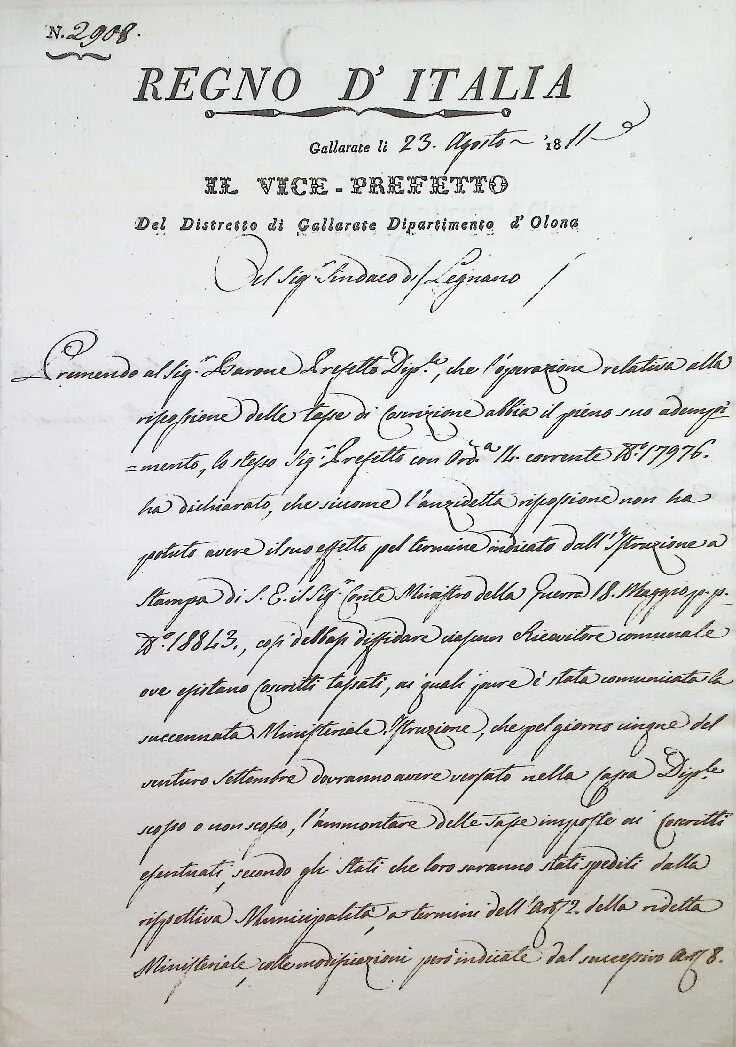 N. 2908.
REGNO D' ITALIA
Gallarate li 23. Agosto 1811
IL VICE-PREFETTO
Del Distretto di Gallarate Dipartimento d' Olona
Al Sig.r Sindaco di Legnano
Premendo al Sig.r Barone Prefetto Dip.le, che l'operazione relativa alla
riscossione delle tasse di Coscrizione abbia il pieno suo adempi
=mento, lo stesso Sig.r Prefetto con Ord.a 14. corrente N.o 17976.
ha dichiarato, che siccome l'anzidetta riscossione non ha
potuto avere il suo effetto pel termine indicato dall'Istruzione a
stampa di S. E. il Sig.r Conte Ministro della Guerra 18. Maggio p. p.
N.o 18843., così debbasi diffidare ciascun Ricevitore comunale
ove esistano Coscritti tassati, ai quali pure è stata comunicata la
succennata Ministeriale Istruzione, che pel giorno cinque del
venturo Settembre dovranno avere versato nella Cassa Dip.le
scosso o non scosso, l'ammontare delle tasse imposte ai Coscritti
esentuati, secondo gli Stati che loro saranno stati spediti dalla
rispettiva Municipalità, a termini dell'Art. 2. della ridetta
Ministeriale, colle modificazioni però indicate dal successivo Art. 8.